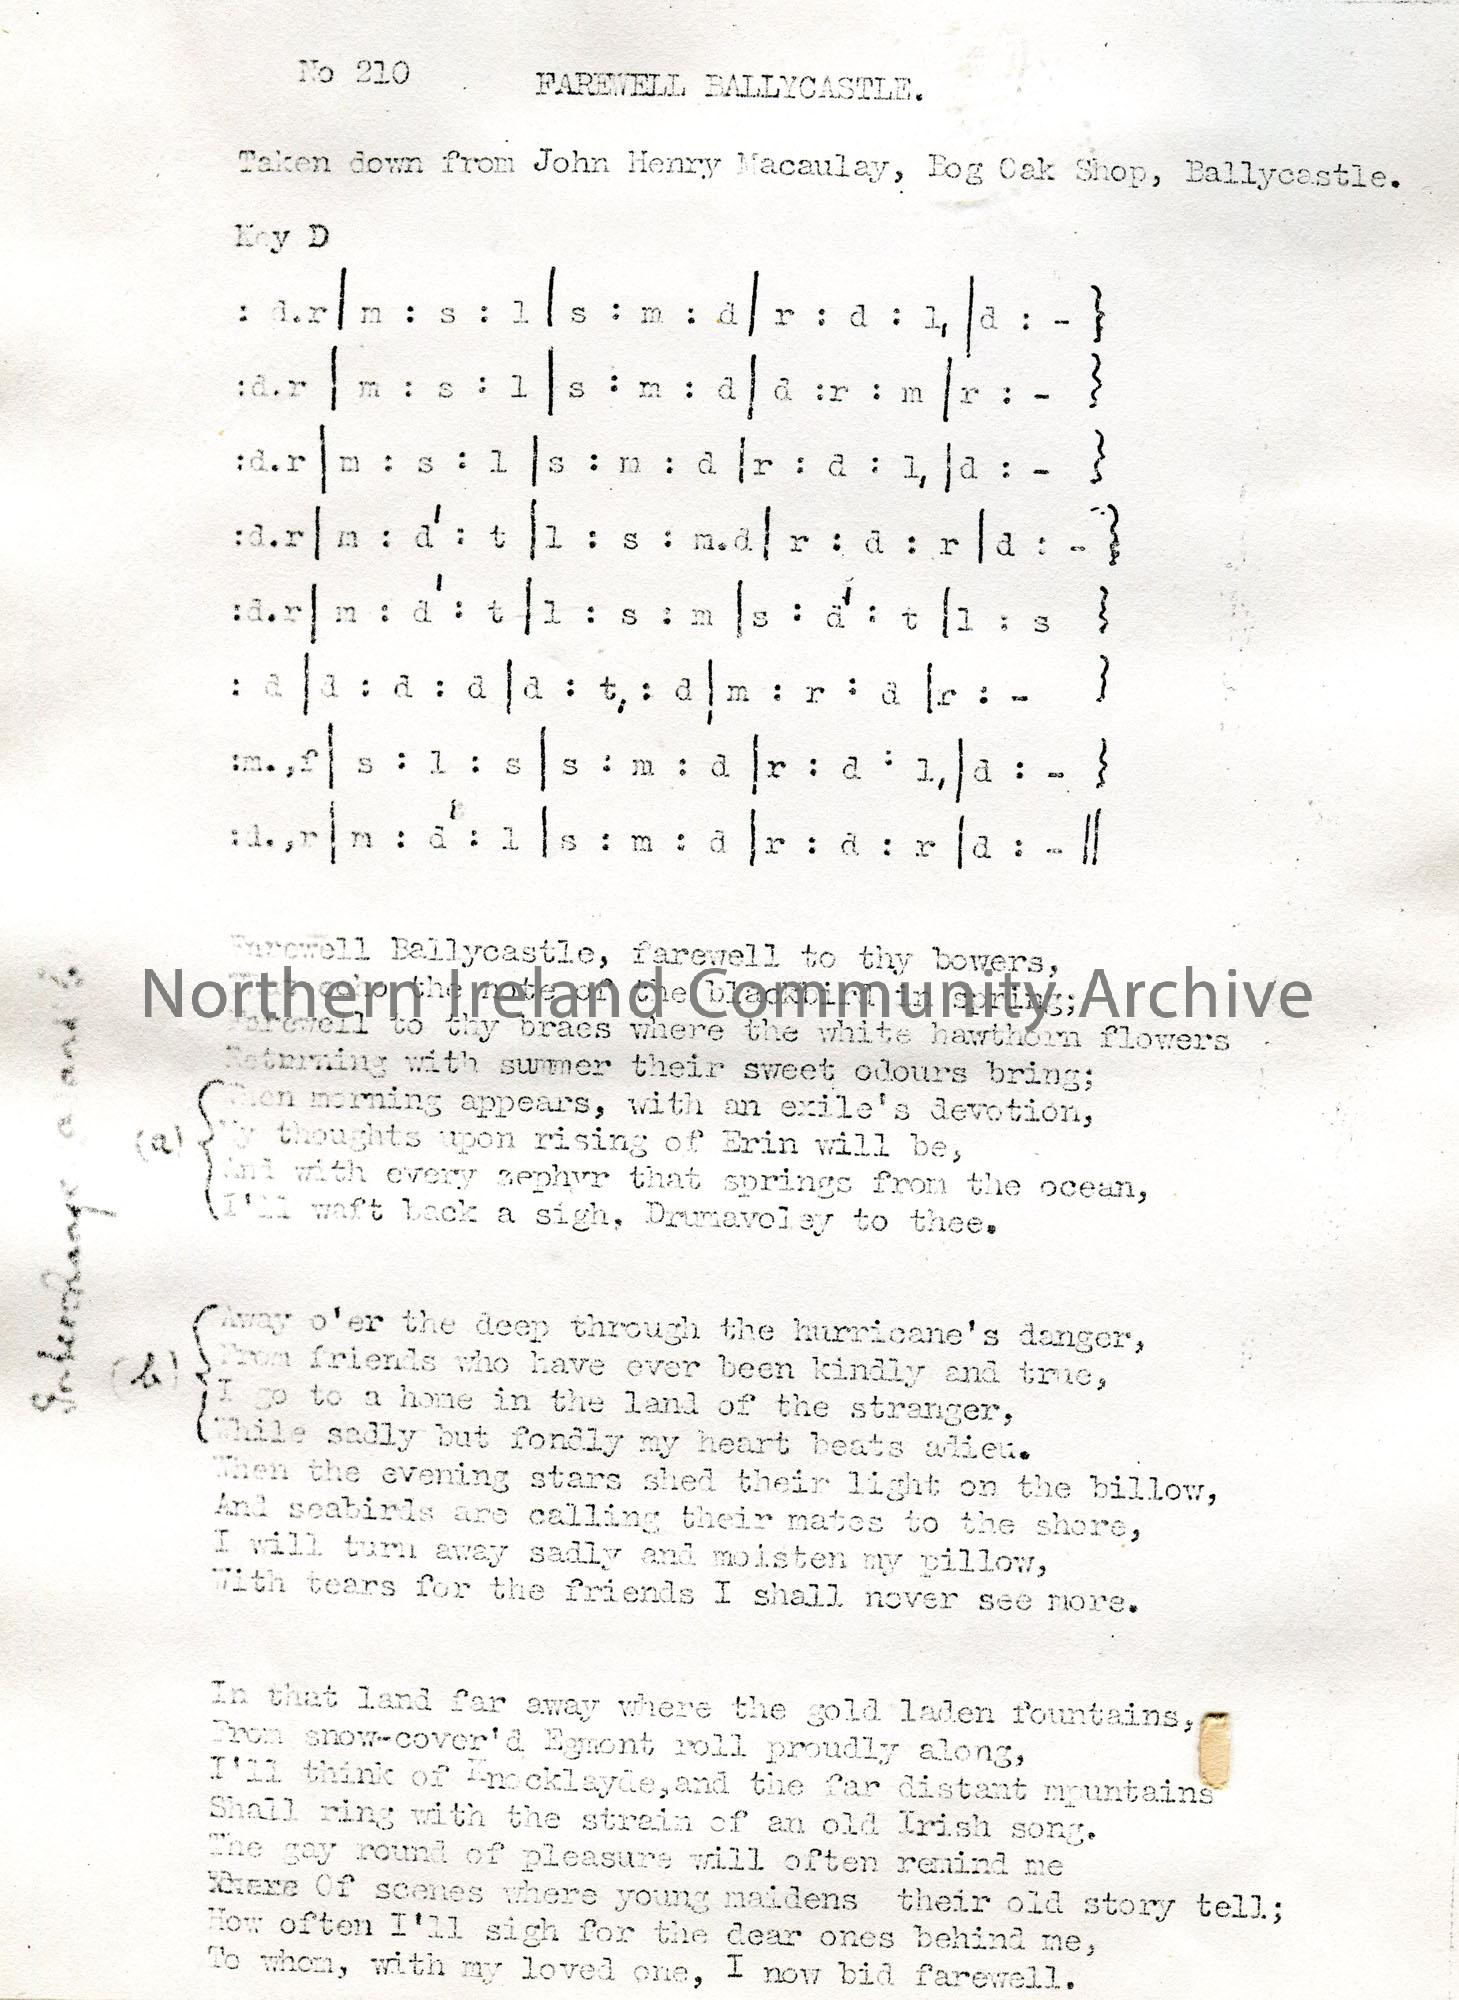 No 210
FAREWELL BALLYCASTLE.
Taken down from John Henry Macaulay, Bog Oak Shop, Ballycastle.
Key D
: d.r | m : s : l | s : m : d | r : d : l, | d : - }
:d.r | m : s : l | s : m : d | d :r : m | r : - }
:d.r | m : s : l | s : m : d | r : d : l, | d : - }
:d.r | m : d' : t | l : s : m.d | r : d : r | d : - }
:d.r | m : d' : t | l : s : m | s : d' : t | l : s }
: d | d : d : d | d : t, : d | m : r : d | r : - }
:m.,f | s : l : s | s : m : d | r : d : l, | d : - }
:d.,r | m : d' : l | s : m : d | r : d : r | d : - ||
Farewell Ballycastle, farewell to thy bowers,
echo the note of the blackbird in spring;
Northern Ireland Community Archive
Farewell to thy braes where the white hawthorn flowers
Returning with summer their sweet odours bring;
When morning appears, with an exile's devotion,
(a)
My thoughts upon rising of Erin will be,
And with every zephyr that springs from the ocean,
I'll waft back a sigh, Drumavoley to thee.
Interchange a and b.
Away o'er the deep through the hurricane's danger,
(b)
From friends who have ever been kindly and true,
I go to a home in the land of the stranger,
While sadly but fondly my heart beats adieu.
When the evening stars shed their light on the billow,
And seabirds are calling their mates to the shore,
I will turn away sadly and moisten my pillow,
With tears for the friends I shall never see more.
In that land far away where the gold laden fountains,
From snow-cover'd Egmont roll proudly along,
I'll think of Knocklayde,and the far distant mpuntains
Shall ring with the strain of an old Irish song.
The gay round of pleasure will often remind me
Of scenes where young maidens their old story tell;
How often I'll sigh for the dear ones behind me,
To whom, with my loved one, I now bid farewell.